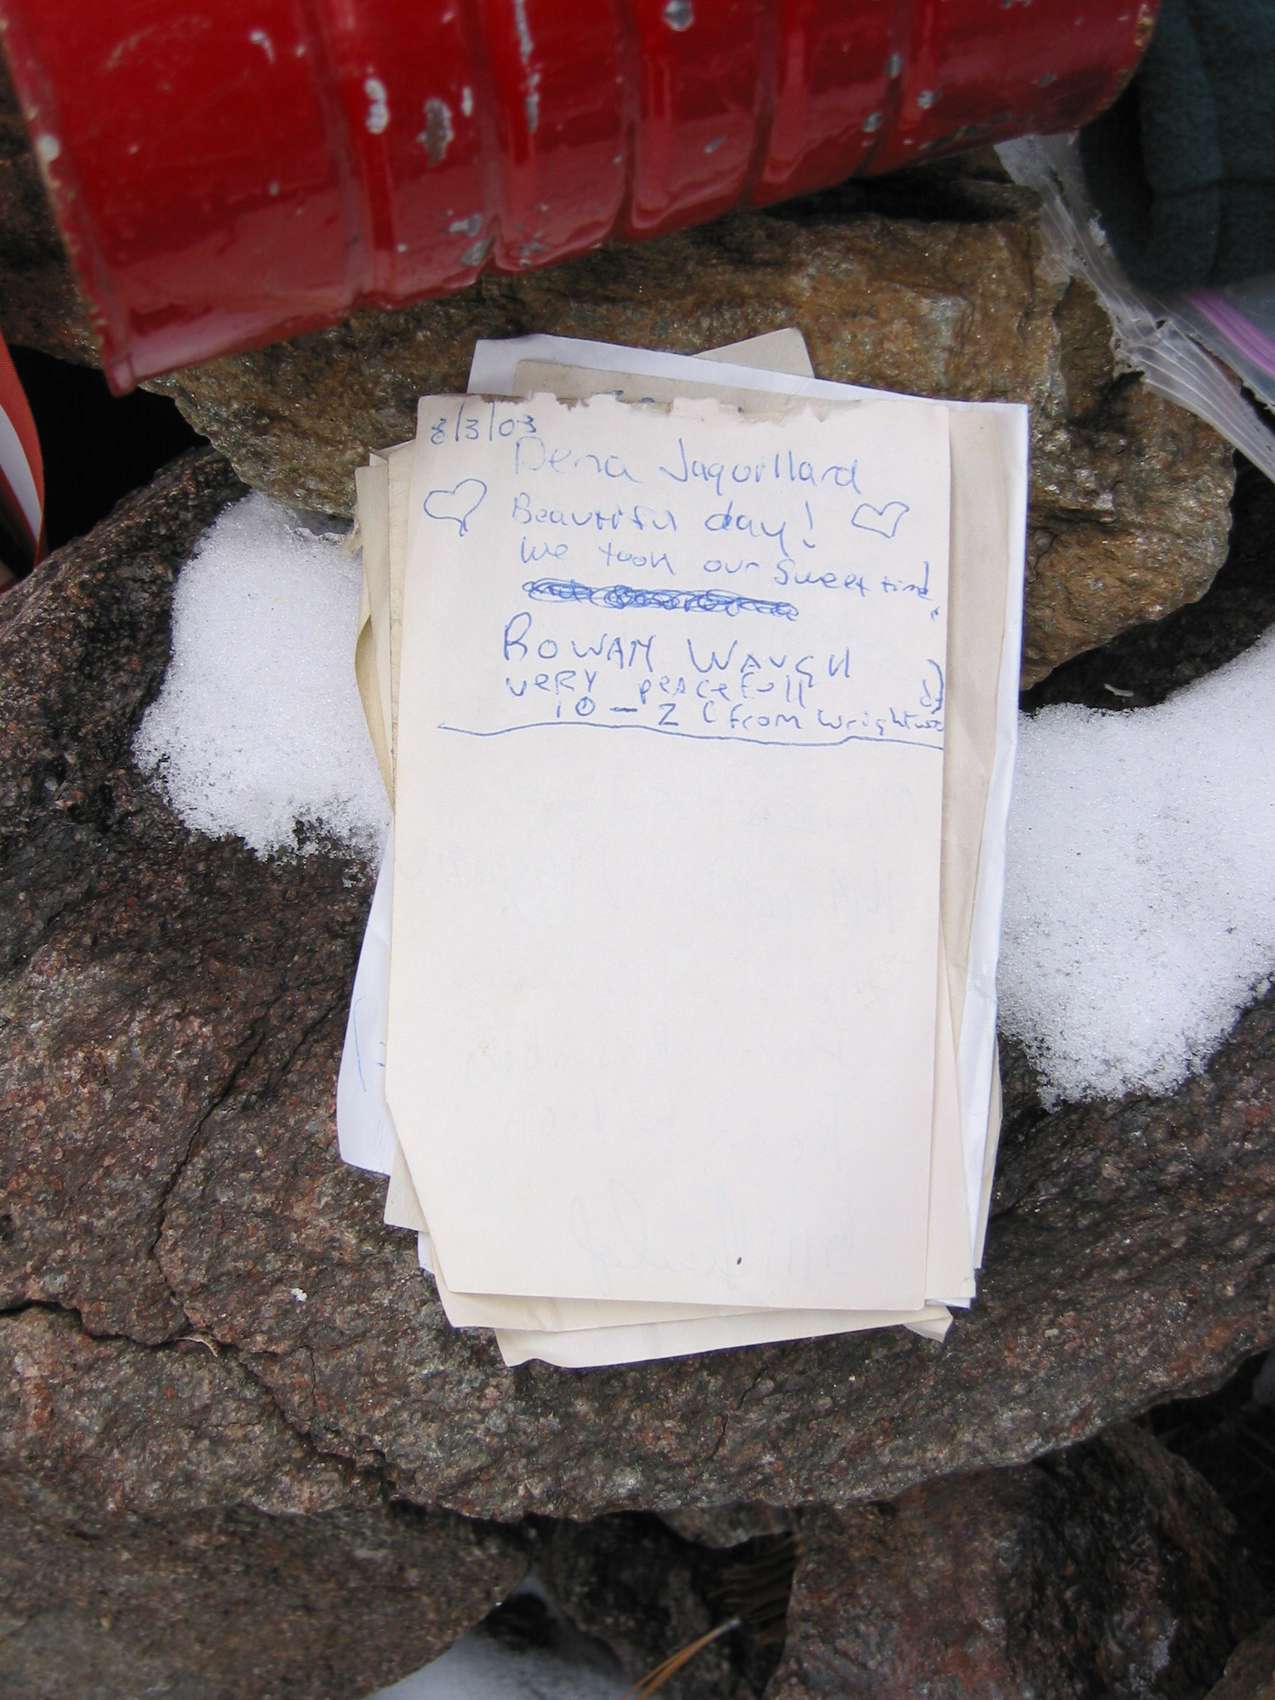 8/3/03
Dena Jaquillard
Beautiful day!
We took our sweet time!
ROWAN WAUGH
VERY PEACEfull
10 - 2 (from Wrightwo